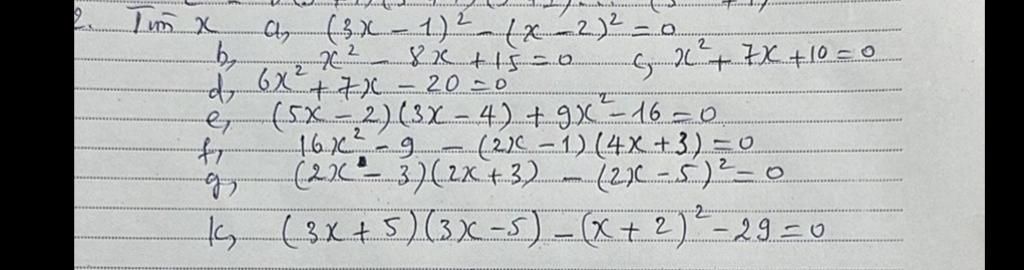 2. Tìm x a, (3x - 1)² - (x - 2)² = 0
b, x² - 8x + 15 = 0 c, x² + 7x + 10 = 0
d, 6x² + 7x - 20 = 0
e, (5x - 2)(3x - 4) + 9x² - 16 = 0
f, 16x² - 9 - (2x - 1)(4x + 3) = 0
g, (2x - 3)(2x + 3) - (2x - 5)² = 0
k, (3x + 5)(3x - 5) - (x + 2)² - 29 = 0